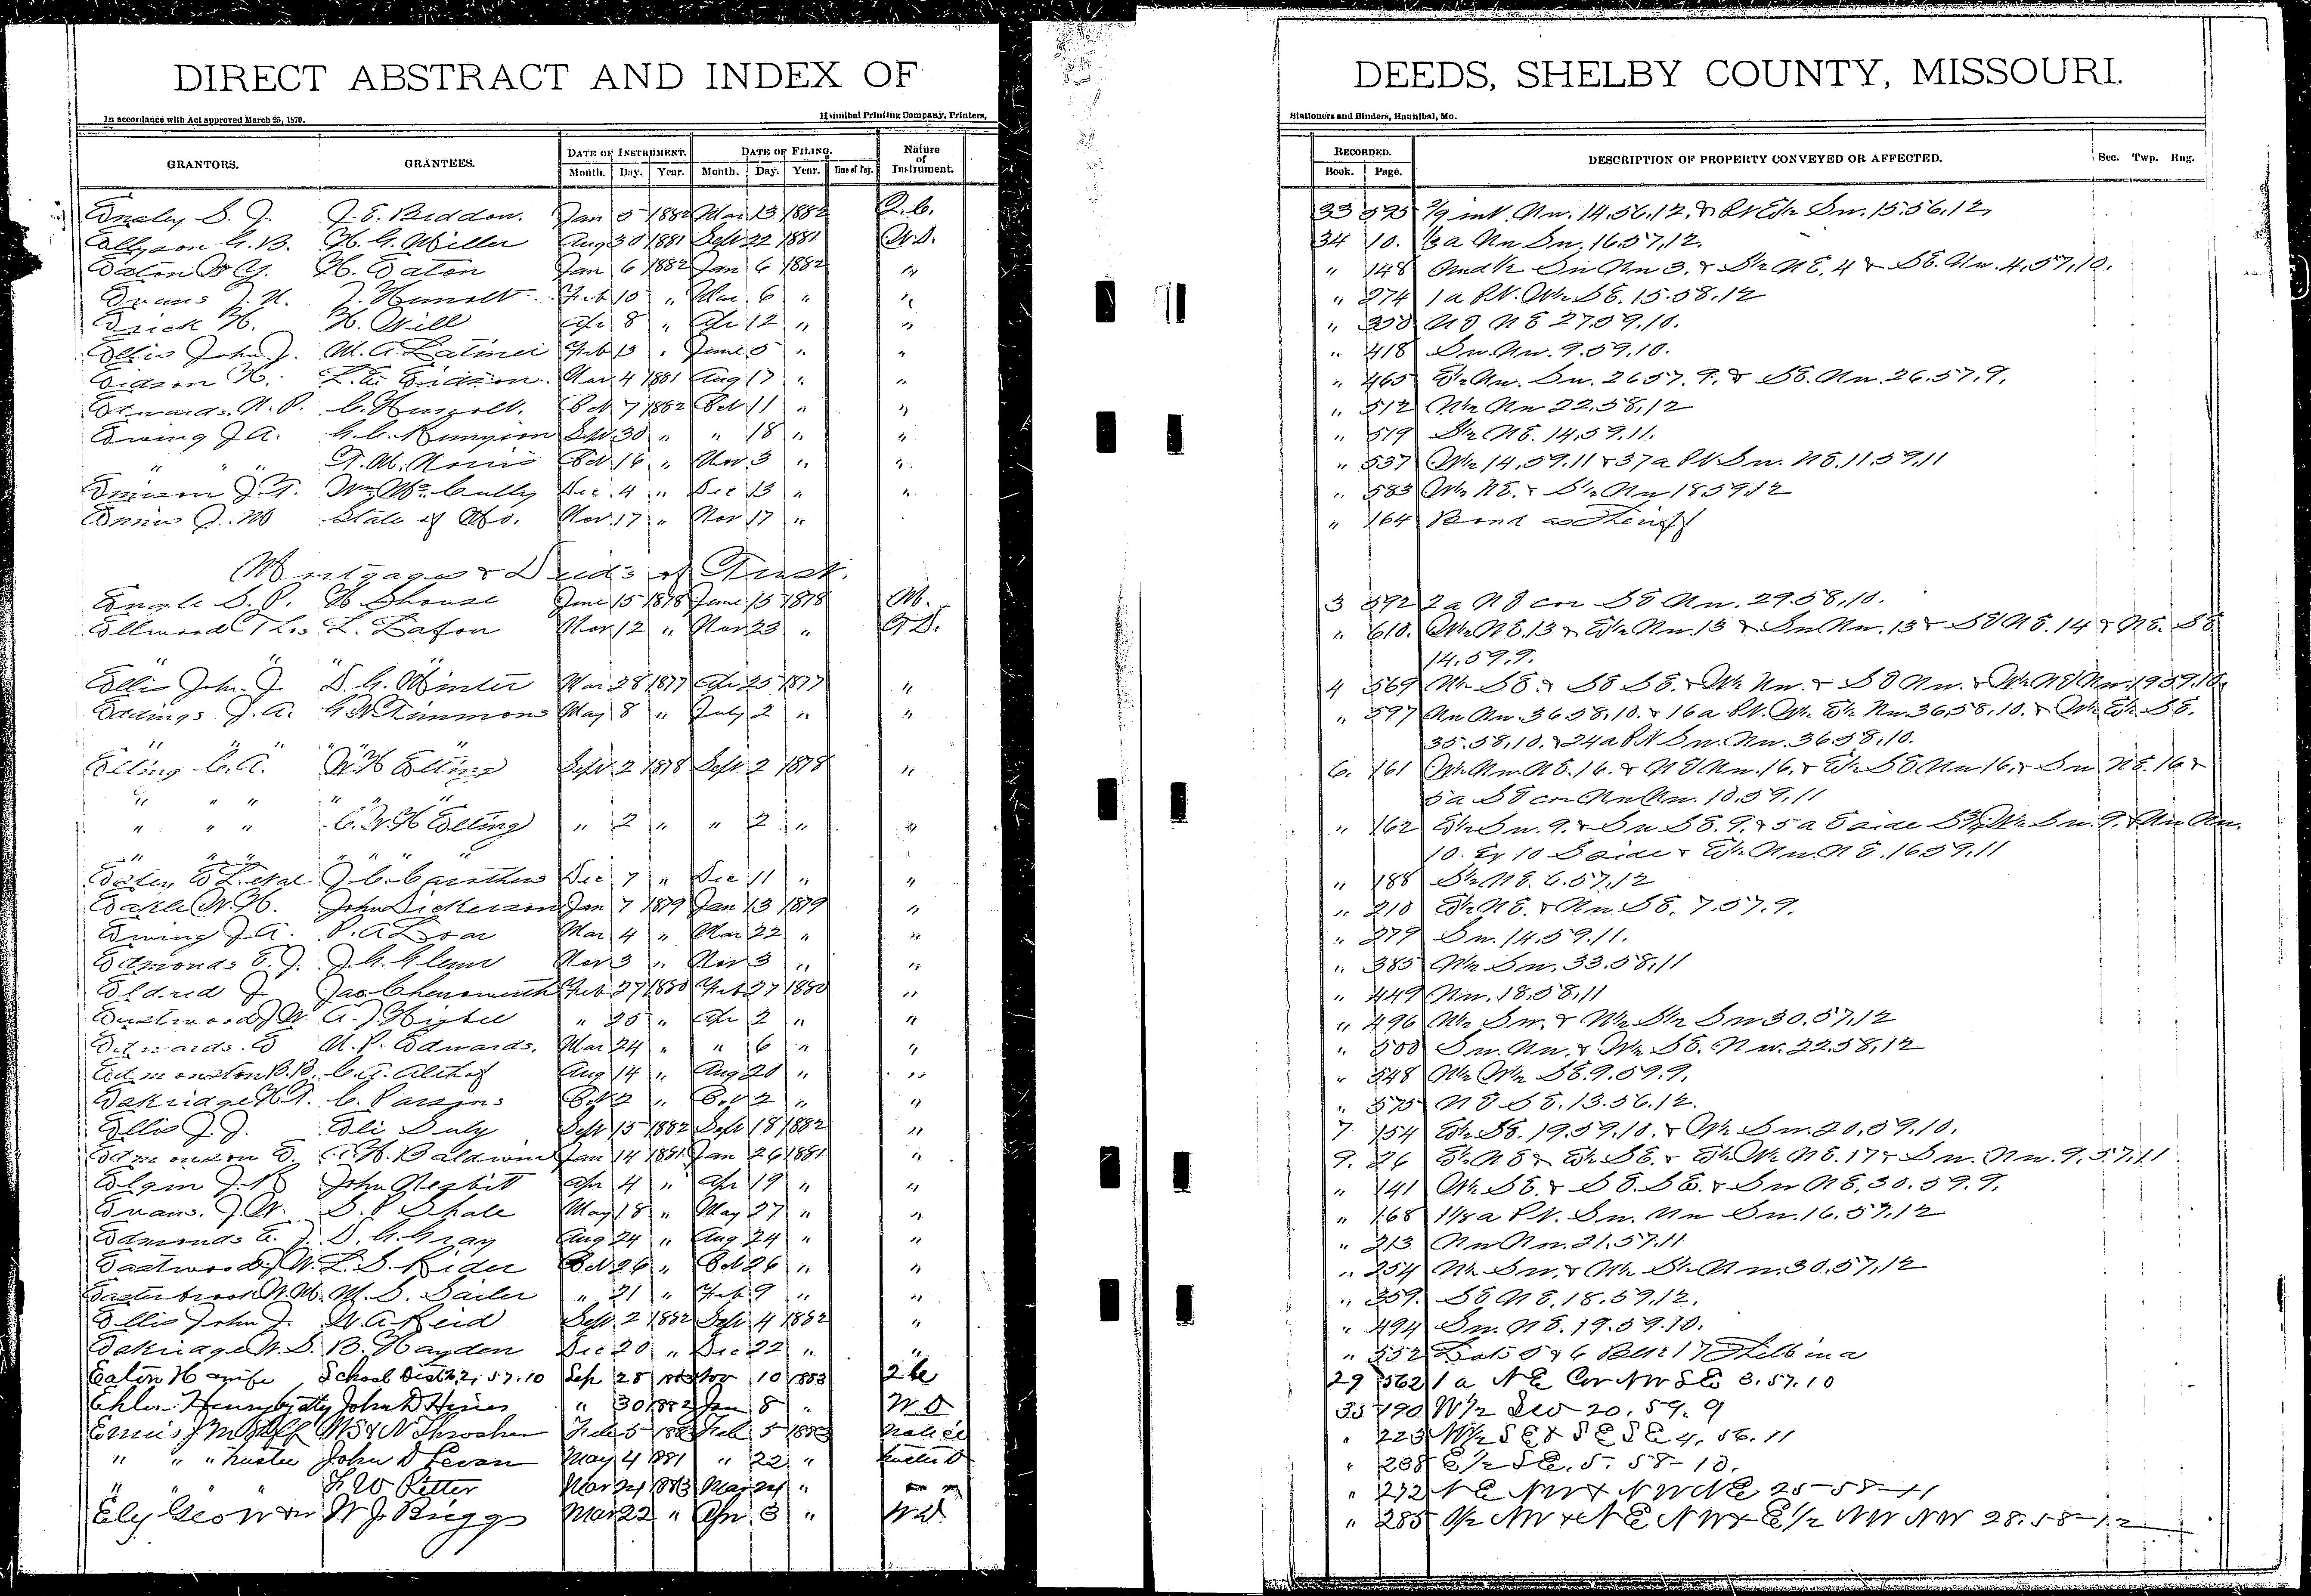 DIRECT ABSTRACT AND INDEX OF DEEDS, SHELBY COUNTY, MISSOURI.
In accordance with Act approved March 25, 1870. Hannibal Printing Company, Printers, Stationers and Binders, Hannibal, Mo.
GRANTORS. GRANTEES. DATE OF INSTRUMENT. DATE OF FILING. Nature of Instrument. RECORDED. DESCRIPTION OF PROPERTY CONVEYED OR AFFECTED. Sec. Twp. Rng.
Month. Day. Year. Month. Day. Year. Time of Day. Book. Page.
S. J. J. E. Jan 5 1882 Mar 13 1882 Q.C. 33 595 int. Nw. 14.56.12. & Pt E½ Sw. 15.56.12
G. B. H. G. Miller Aug 30 1881 Sept 22 1881 W.D. 34 10. a Nw Sw. 16.57.12.
Eaton H. Eaton Jan 6 1882 Jan 6 1882 " " 148 Und½ Nw 3. & S½ NE. 4 & SE. Nw. 4.57.10.
Evans J. Feb 10 " Mar 6 " " " 274 1 a Pt. W½ SE. 15.58.12
H. H. Will Apr 8 " Apr 12 " " " NE NE 27.59.10.
Ellis John J. M. A. Latimer Feb 13 " June 5 " " " 418 Sw. Nw. 9.59.10.
Eidson H. L. E. Eidson Mar 4 1881 Aug 17 " " " 465 E½ Nw. Sw. 26.57.9. & SE. Nw. 26.57.9.
Edwards. N. P. C. Oct 7 1882 Oct 11 " " " 512 N½ Nw 22.58.12
Ewing J A. G. C. Runyion Sept 30 " " 18 " " " 519 S½ NE. 14.59.11.
" " " T. M. Norris Oct 16 " Nov 3 " " " 537 W½ 14.59.11 & 37 a Pt Sw. NE. 11.59.11
J. T. Wm Mc Cully Dec. 4 " Dec 13 " " " 583 W½ NE. & S½ Nw 18 59 12
Ennis J. M State of Mo. Nov. 17 " Nov 17 " " 164 Bond as Sheriff
Mortgages & Deeds of Trust.
Engle S. P. H Shouse June 15 1878 June 15 1878 M. 3 592 2 a NE cor SE Nw. 29.58.10.
Ellwood Thos L. Lafon Nov. 12 " Nov 23 " T D. " 610. W½ NE. 13 & E½ Nw. 13 & Sw Nw. 13 & SE NE. 14 & NE. SE
" " " " 14.59.9.
Ellis John. J. D. G. Minter Mar 28 1877 Apr 25 1877 " 4 569 N½ SE. & SE SE. & W½ Nw. & SE Nw. & W½ NE Nw. 19 59.10.
Eddings J. A. G W Timmons May 8 " July 2 " " " 597 Nw Nw. 36 58.10. & 16 a Pt. W½ E½ Nw 36.58.10. & W½ E½ SE.
" " " " 35.58.10. & 24 a Pt Sw. Nw. 36.58.10.
Elting C. A. W H Elting Sept. 2 1878 Sept 2 1878 " 6. 161 W½ Nw NE. 16. & NE Nw. 16. & E½ SE Nw 16. & Sw NE. 16 &
" " " " " 5 a SE cor Nw Nw. 10.59.11
" " " C. W. H Elting " 2 " " 2 " " " 162 E½ Sw. 9. & Sw SE. 9. & 5 a E side W½ Sw. 9. & Nw Nw.
" " " " " " 10. Ex 10 S side & E½ Nw. NE. 16 59.11
E L. et al J. C. Carothers Dec 7 " Dec 11 " " " 188 S½ NE. 6.57.12
Eakle W. H. John Dickerson Jan 7 1879 Jan 13 1879 " " 210 E½ NE. & Nw SE. 7.57.9.
Ewing J A. P. A Mar 4 " Mar 22 " " " 279 Sw. 14.59.11.
Edmonds E. J. J. G. Glenn Nov 3 " Nov 3 " " " 385 W½ Sw. 33.58.11
Eldred J. Jas Chenoweth Feb 27 1880 Feb 27 1880 " " 449 Nw. 18.58.11
Eastwood J W. A. J. Higbee " 25 " Apr 2 " " " 496 N½ Sw. & N½ S½ Sw 30.57.12
Edwards. E N. P. Edwards. Mar 24 " " 6 " " " 500 Sw. Nw. & W½ SE. Nw. 22 58.12
Edmonston B. B. C. A. Aug 14 " Aug 20 " " " 548 N½ W½ SE. 9.59.9.
Eskridge H T. C. Parsons Oct 2 " Oct 2 " " " 575 NE SE. 13.56.12.
Ellis J. J. Eli Daly Sept 15 1882 Sept 18 1882 " 7 154 E½ SE. 19.59.10. & W½ Sw. 20.59.10.
E. A. H. Baldwin Jan 14 1881 Jan 26 1881 " 9. 26 E½ NE & E½ SE. & E½ W½ NE. 17 & Sw. Nw. 9.57.11
Elgin J. John Nesbitt Apr 4 " Apr 19 " " " 141 W½ SE. & SE. SE. & Sw NE. 30.59.9.
Evans. J. W. S. P. Shale May 18 " May 27 " " " 168 a Pt. Sw. Nw Sw. 16.57.12
Edmonds E. J. D. G. Gray Aug 24 " Aug 24 " " " 213 Nw Nw. 21.57.11
Eastwood J W. L. S. Rider Oct 26 " Oct 26 " " " 254 N½ Sw. & N½ S½ Nw. 30.57.12
Easterbrook W. M. M. S. Sailer " 21 " Feb 9 " " " 359. SE NE. 18.59.12.
Ellis John J. W. A Reid Sept 2 1882 Sept 4 1882 " " 494 Sw. NE. 19.59.10.
Eskridge W. S. B. Hayden Dec 20 " Dec 22 " " " 552 Lots 5 & 6 Blk 17 Shelbina
Eaton H & wife School Dist No. 2, 57.10 Sep 28 1883 Nov 10 1883 Q C 29 562 1 a NE Cor NW SE 3.57.10
Ehler Henry by atty John D Hines " 30 1882 Jan 8 " W D 35 190 W½ SW 20.59.9
Ennis J M Shff M S & N Throsher Feb 5 1883 Feb 5 1883 Notice " 223 N½ SE & SE SE 4.56.11
" " " Trustee John D Levan May 4 1881 " 22 " Trustee D " 238 E½ SE. 5.58-10.
" " " F W Ritter Mar 24 1883 Mar 24 " " " " 272 NE NW & NW NE 25-58-11
Ely Geo W & W. J. Briggs Mar 22 " Apr 3 " W D. " 285 NW & NE NW & E½ NW NW 28.58-12